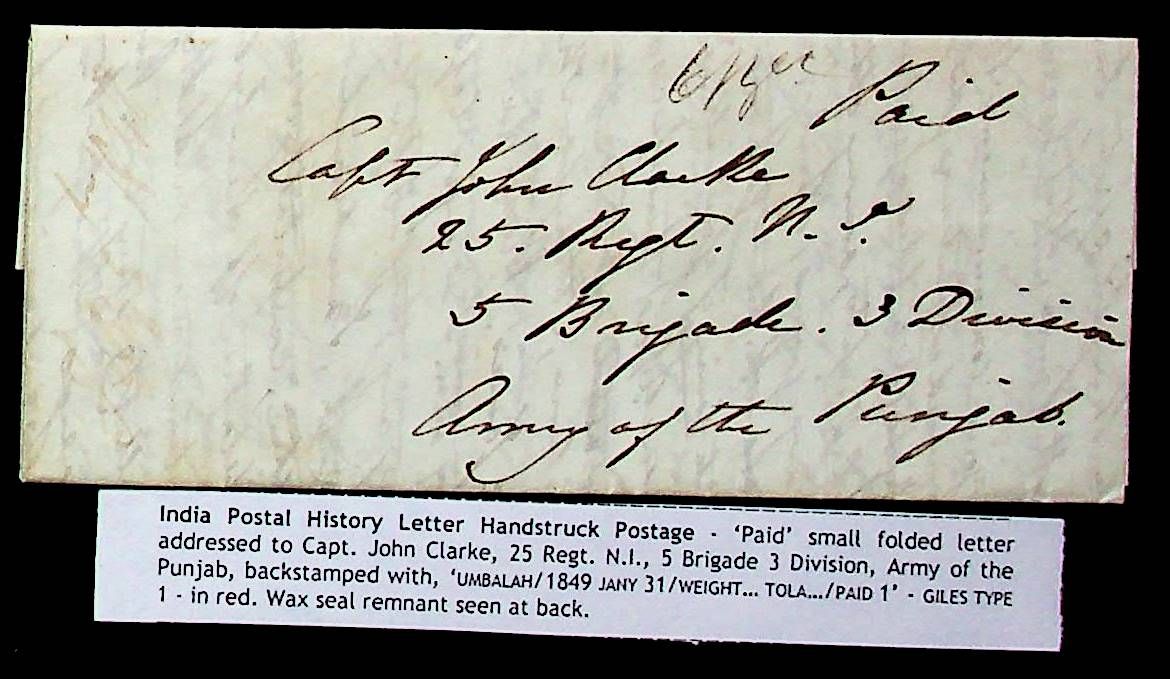 Paid
Capt John Clarke
25. Regt. N. I.
5 Brigade. 3 Division
Army of the Punjab.
India Postal History Letter Handstruck Postage - ‘Paid’ small folded letter
addressed to Capt. John Clarke, 25 Regt. N.I., 5 Brigade 3 Division, Army of the
Punjab, backstamped with, ‘UMBALAH/1849 JANY 31/WEIGHT... TOLA.../PAID 1’ - GILES TYPE
1 - in red. Wax seal remnant seen at back.